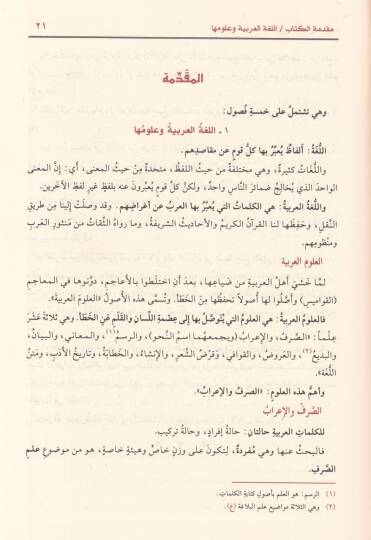 مقدمة الكتاب / اللغة العربية وعلومها
٢١
المقَدِّمة
وهي تشتملُ على خمسةِ فُصول:
١ - اللغةُ العربيةُ وعلومُها
اللُّغةُ: ألفاظٌ يُعبِّرُ بها كلُّ قومٍ عن مقاصدِهم.
واللُّغاتُ كثيرةٌ، وهي مختلفةٌ من حيثُ اللفظُ، متحدةٌ مِنْ حيثُ المعنى، أي: إنَّ المعنى
الواحدَ الذي يُخالِجُ ضمائرَ النَّاسِ واحدٌ، ولكنْ كلُّ قومٍ يُعبِّرونَ عنه بلفظٍ غيرِ لفظِ الآخَرين.
واللغةُ العربيةُ: هي الكلماتُ التي يُعبِّرُ بها العربُ عن أغراضِهم. وقد وصلتْ إلينا مِن طريقِ
النَّقلِ، وحَفِظَها لنا القرآنُ الكريمُ والأحاديثُ الشريفةُ، وما رواهُ الثِّقاتُ من مَنثورِ العربِ
ومنظومِهم.
العلوم العربية
لمَّا خَشِيَ أهلُ العربيةِ من ضَياعِها، بعدَ أنِ اختلَطوا بالأعاجمِ، دوَّنوها في المعاجمِ
(القواميسِ) وأصَّلوا لها أُصولاً تحفظُها مِنَ الخَطَأ. وتُسمَّى هذه الأصُولُ «العلومَ العربية».
فالعلومُ العربيةُ: هي العلومُ التي يُتوصَّلُ بها إلى عِصْمَةِ اللِّسانِ والقَلَمِ عنِ الخَطَأ. وهي ثلاثةَ عَشَرَ
عِلْماً: «الصَّرفُ، والإعرابُ (ويجمعهُما اسمُ النَّحوِ)، والرسم(١)، والمعاني، والبيانُ،
والبديعُ(٢)، والعَروضُ، والقوافي، وقَرْضُ الشِّعرِ، والإنشاءُ، والخَطابةُ، وتاريخُ الأدبِ، ومَتنُ
اللُّغة».
وأهمُّ هذه العلومِ: «الصرفُ والإعرابُ».
الصَّرفُ والإعرابُ
للكلماتِ العربيةِ حالتانِ: حالةُ إفرادٍ، وحالةُ تركيب.
فالبحثُ عنها وهي مُفردةٌ، لِتكونَ على وزنٍ خاصٍّ وهيئةٍ خاصةٍ، هو من موضوعِ علمِ
الصَّرف.
(١) الرسم: هو العلم بأصول كتابة الكلمات.
(٢) وهي الثلاثة مواضيع علم البلاغة (ع).